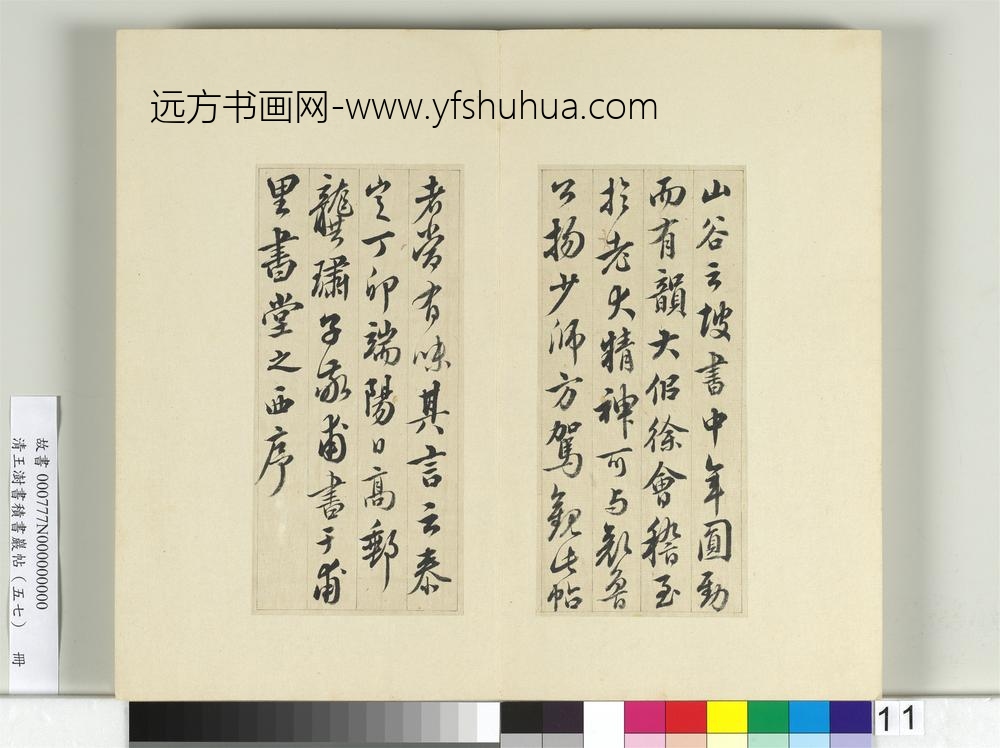 远方书画网-www.yfshuhua.com
山谷云坡書中年圓勁
而有韻大佀徐會稽至
於老大精神可与顏魯
公楊少師方駕觀此帖
者當有味其言云泰
定丁卯端陽日高郵
龔璛子敬甫書于甫
里書堂之西序
故書 000777N000000000
清王澍書積書巖帖(五七) 冊
11